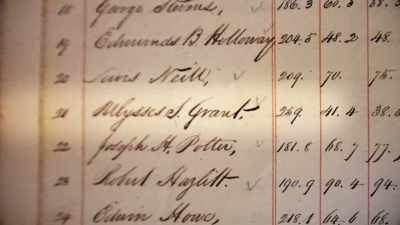 18 George Stevens, 186.3 60.3 58.
19 Edmunds B. Holloway, 204.5 48.2 48.
20 Lewis Neill, 209. 70. 75.
21 Ulysses S. Grant. 269. 41.4 38.
22 Joseph H. Potter, 181.8 68.7 77.
23 Robert Hazlitt. 190.9 90.4 94.
24 Edwin Howe, 218.1 64.6 68.